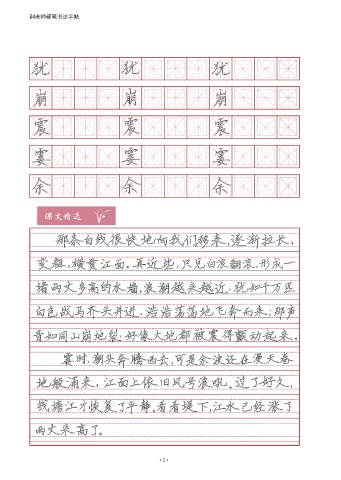 荆老师硬笔书法字帖
犹 犹 犹
崩 崩 崩
震 震 震
霎 霎 霎
余 余 余
课文精选
那条白线很快地向我们移来,逐渐拉长,
变粗,横贯江面。再近些,只见白浪翻滚,形成一
堵两丈多高的水墙。浪潮越来越近,犹如千万匹
白色战马齐头并进,浩浩荡荡地飞奔而来;那声
音如同山崩地裂,好像大地都被震得颤动起来。
霎时,潮头奔腾西去,可是余波还在漫天卷
地般涌来,江面上依旧风号浪吼。过了好久,
钱塘江才恢复了平静。看看堤下,江水已经涨了
两丈来高了。
· 2 ·